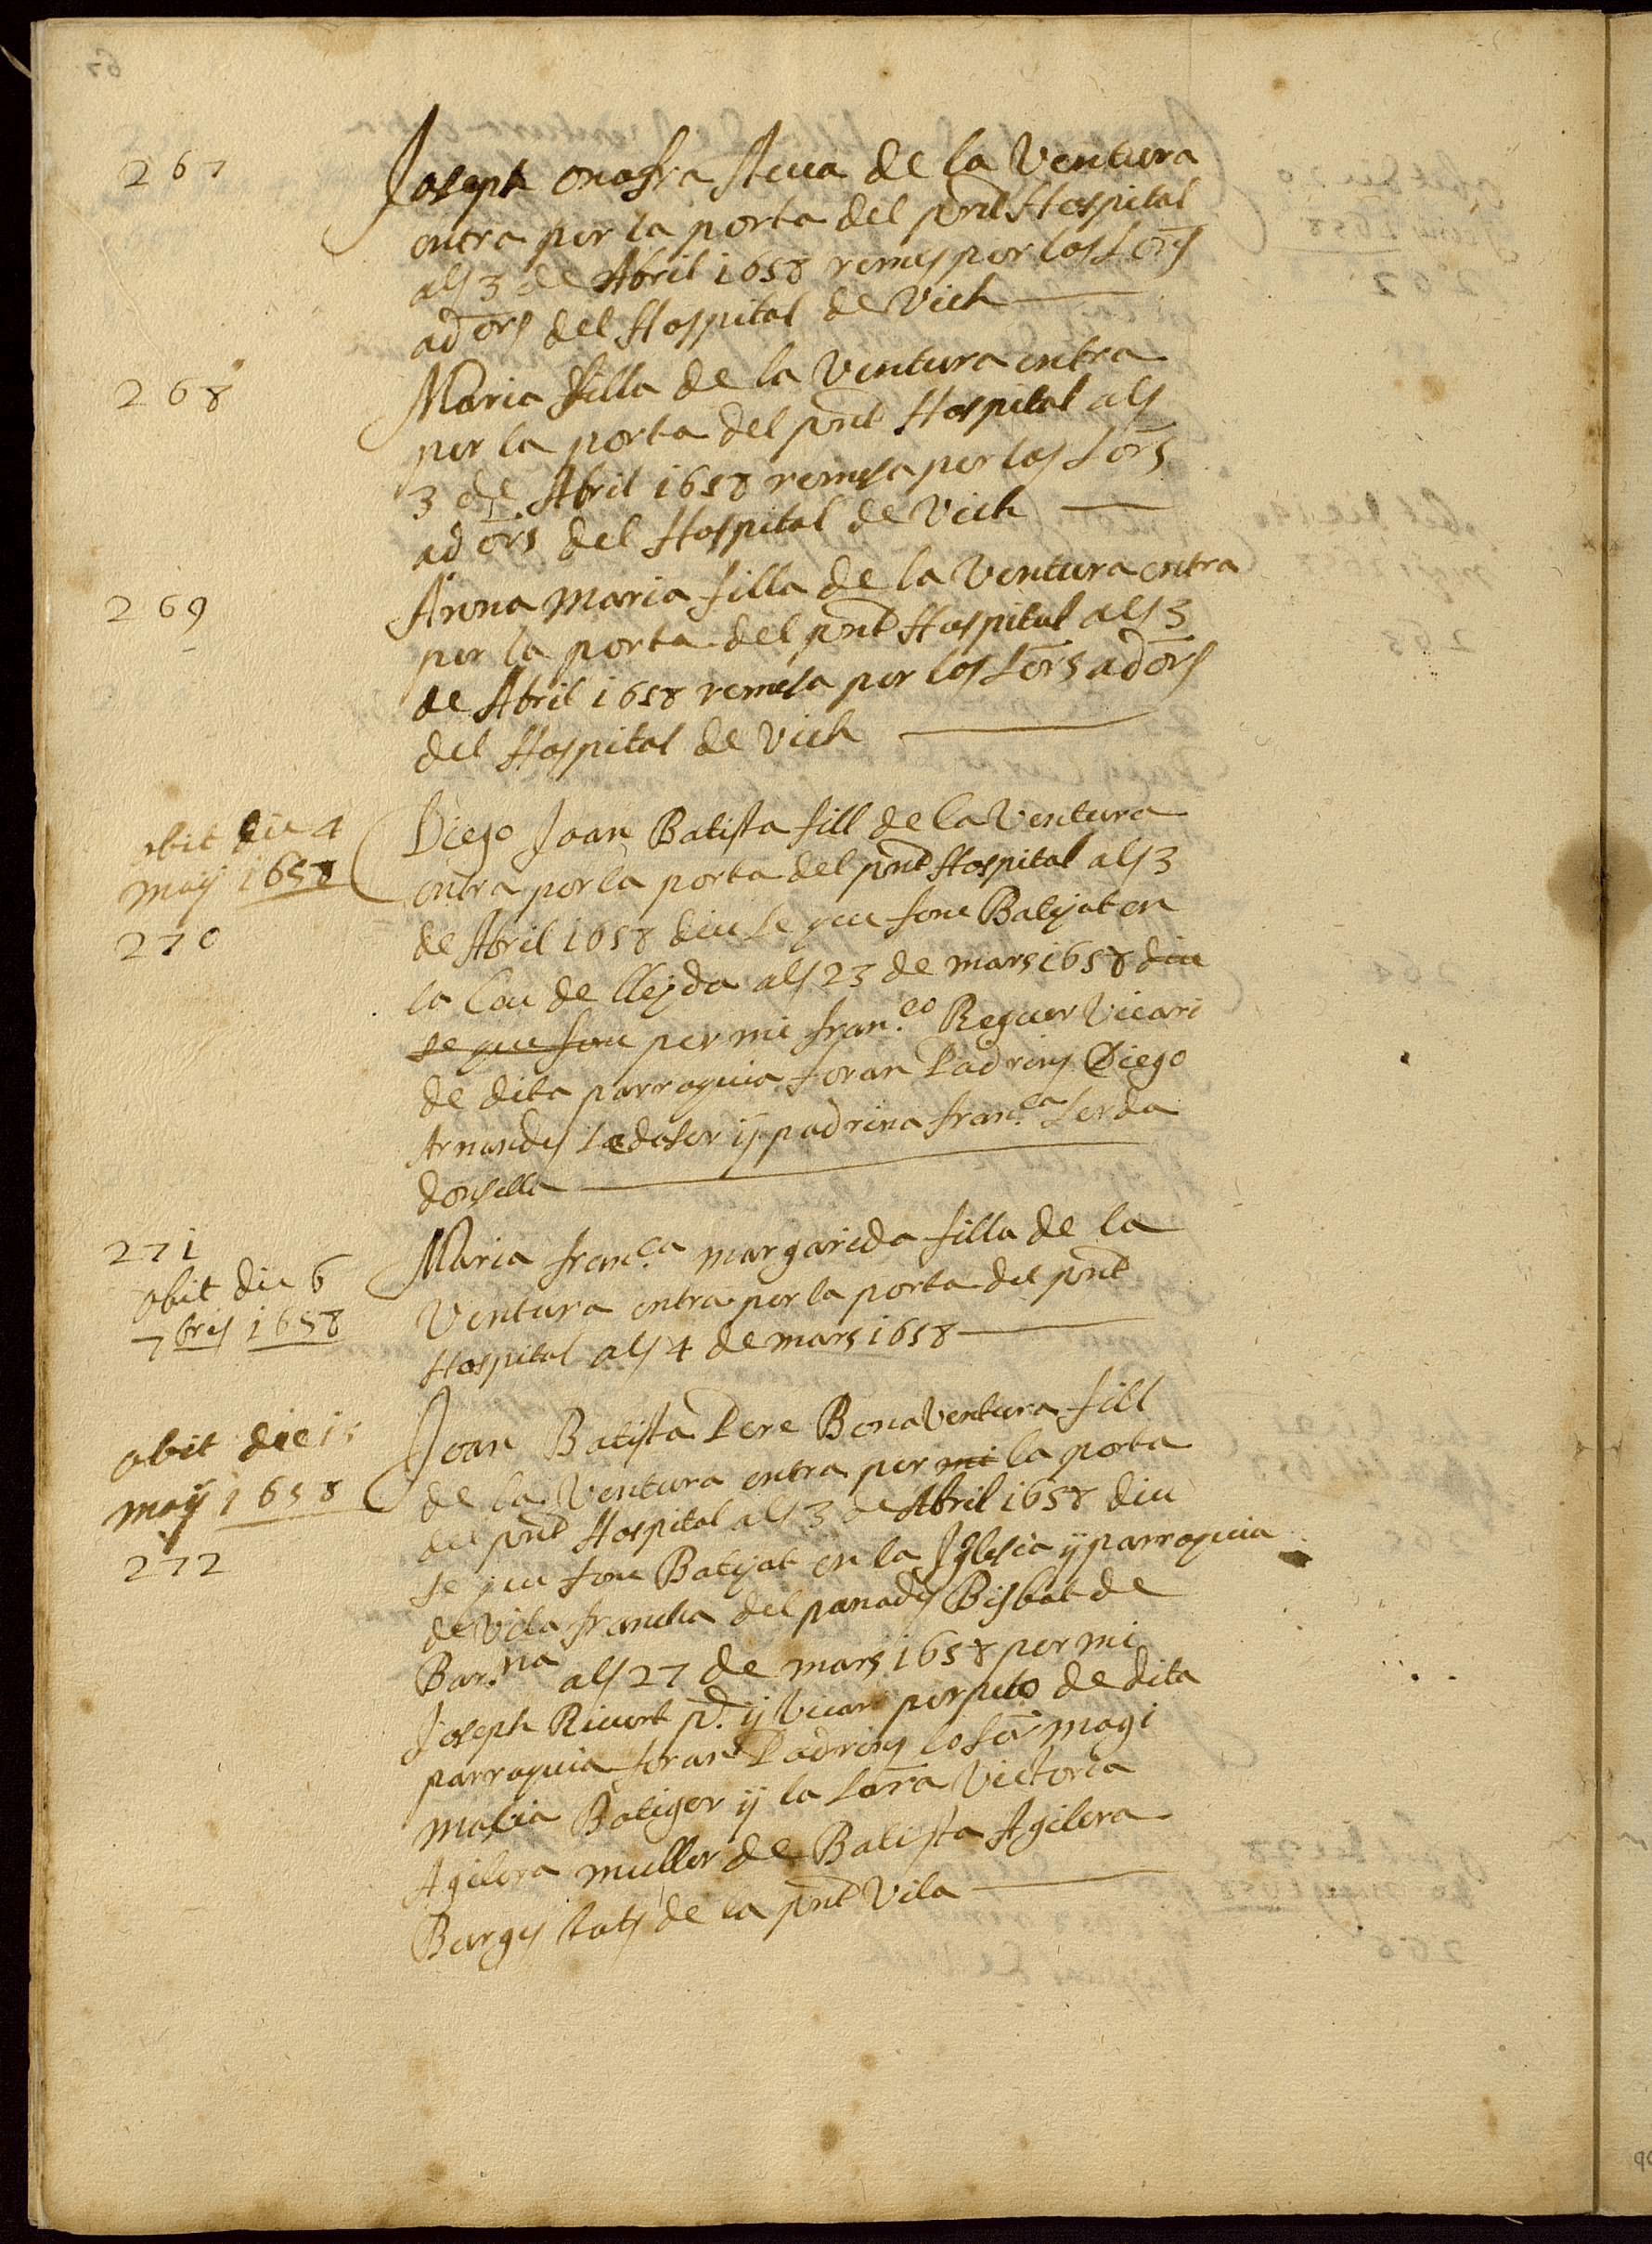 267
Joseph onofra steva de la Ventura
entra per la porta del pnt Hospital
als 3 de Abril 1658 remes per los Sors
adors del Hospital de Vich
268
Maria filla de la Ventura entra
per la porta del pnt Hospital als
3 de Abril 1658 remesa per los Sors
adors del Hospital de Vich
269
Anna Maria filla de la Ventura entra
per la porta del pnt Hospital als 3
de Abril 1658 remesa per los Sors adors
del Hospital de Vich
obit die 4
maÿ 1658
270
Diego Joan Batista fill de la Ventura
entra per la porta del pnt Hospital als 3
de Abril 1658 diu se que fonc Batejat en
la Seu de lleyda als 23 de mars 1658 diu
se que fou per mi fran.co Reguer Vicari
de dita parroquia foran Padrins Diego
Arnandes y padrina fran.ca Serda
donsella
271
obit die 6
7bris 1658
Maria fran.ca margarida filla de la
Ventura entra per la porta del pnt
Hospital als 4 de mars 1658
obit die
maÿ 1658
272
Joan Batista Pere Bonaventura fill
de la Ventura entra per mi la porta
del pnt Hospital als 3 de Abril 1658 diu
se que fou Batejat en la Iglesia ÿ parroquia
de Vila francha del panades Bisbat de
Bar.na als 27 de mars 1658 per mi
Joseph Ricart p.r ÿ Vicari perpeto de dita
parroquia foran Padrins lo Sor magi
macia Botiger ÿ la Sora Victoria
Agilera muller de Batista Agilera
Burges tots de la pnt Vila